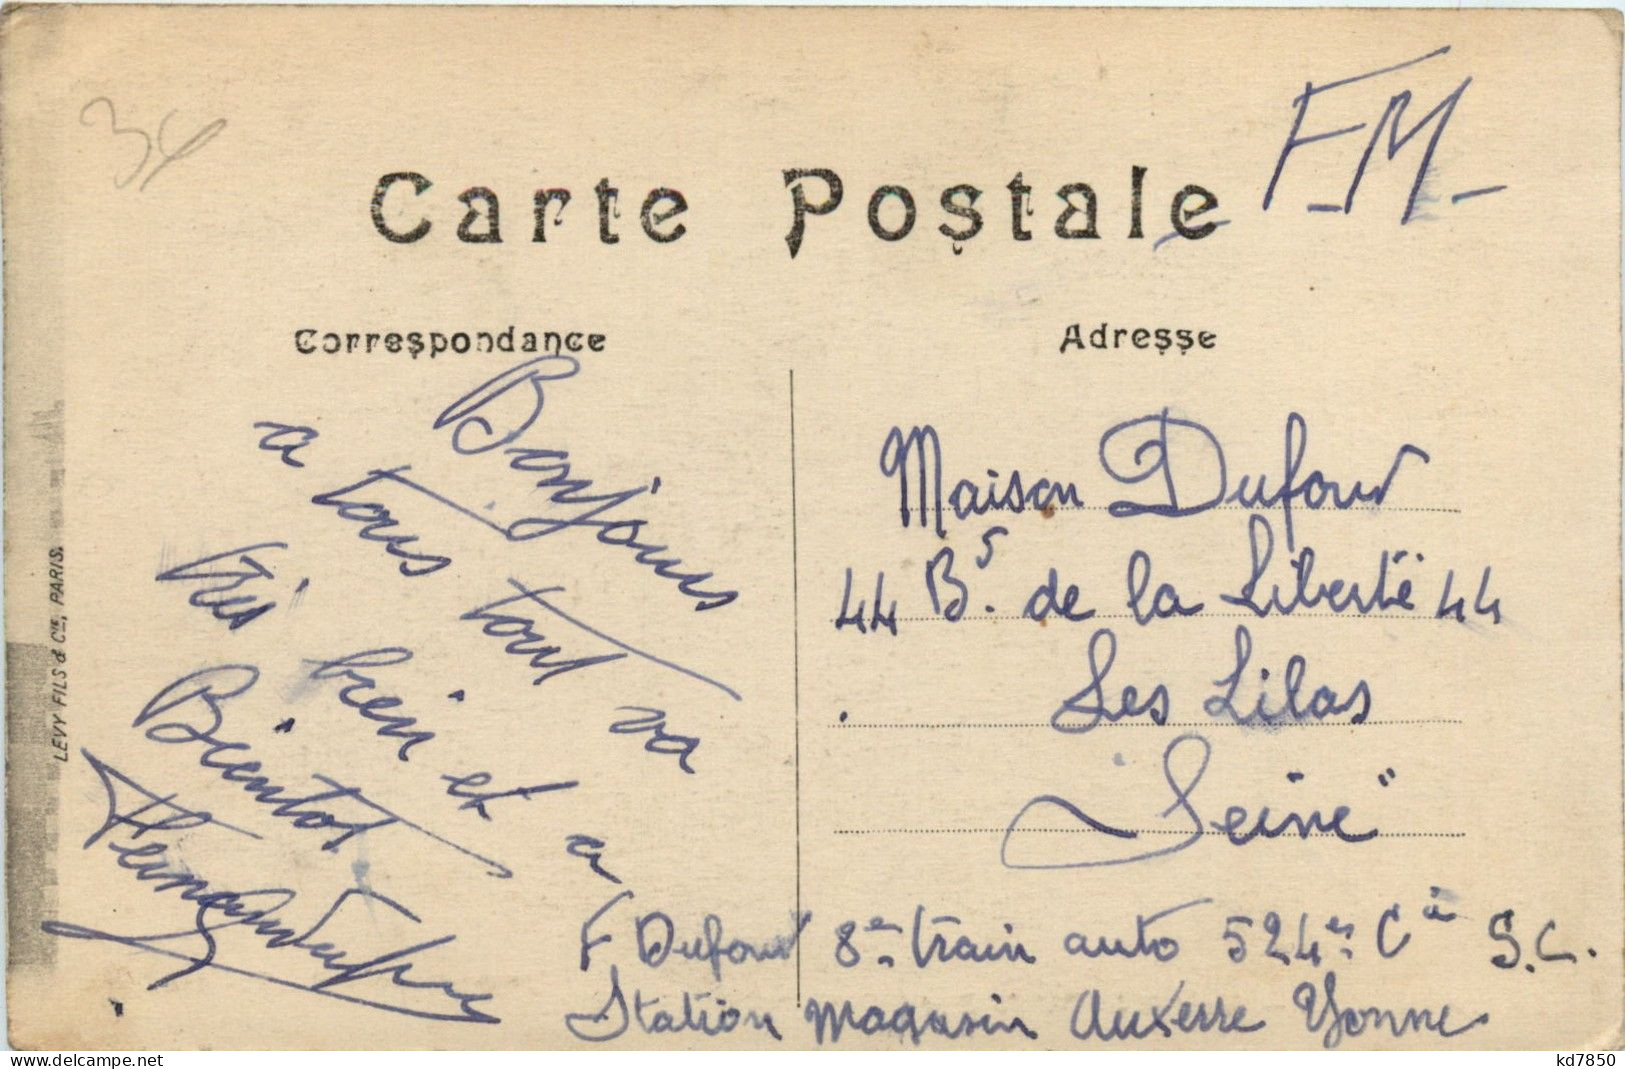 34
F-M-
Carte Postale
Correspondance
Adresse
Bonjour
a tous tout va
très bien et a
Bientot
Maison Dufour
44 Bs. de la Liberté 44
Les Lilas
Seine"
F Dufour 8e train auto 524es Cie S.C.
Station magasin Auxerre Yonne
LEVY FILS & Cie, PARIS.
delcampe.net
kd7850